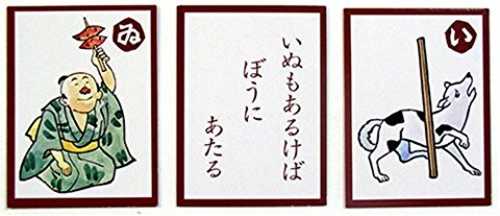 ゐ
いぬもあるけば
ぼうに
あたる
い